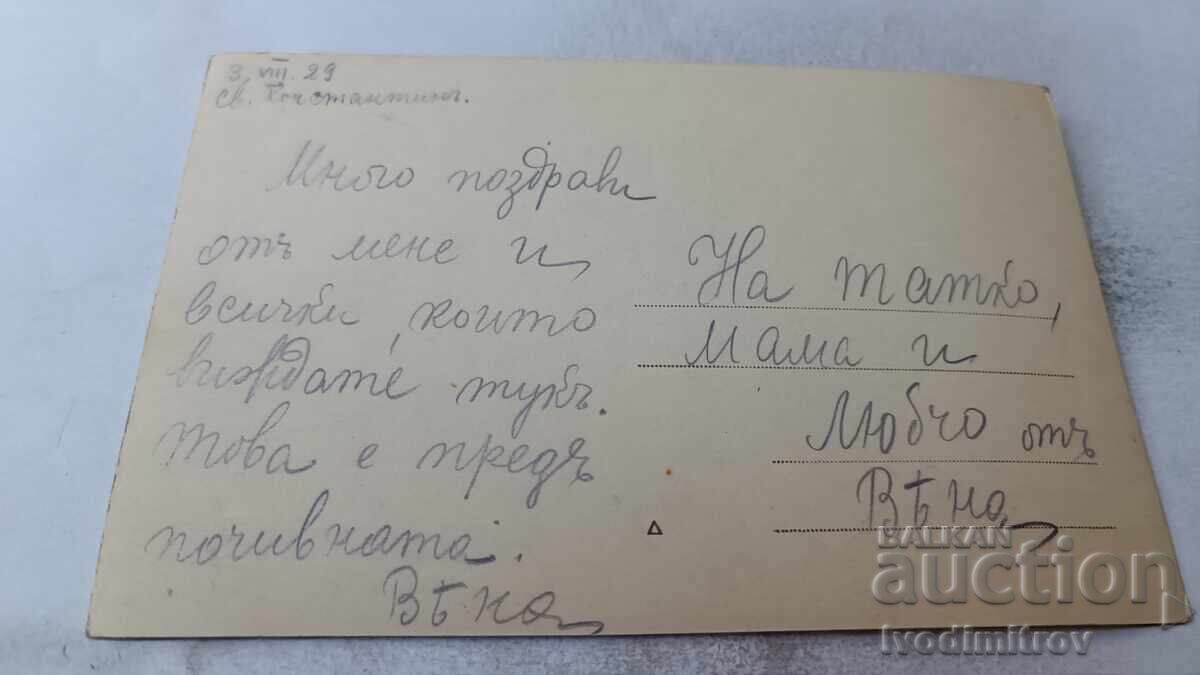 3. VIII. 29
Св. Константинъ.
Много поздрави
отъ мене и
всички, които
виждате тукъ.
Това е предъ
почивната.
Вѣна
На татко,
мама и
Любчо отъ
Вѣна
BALKAN
auction
Ivodimitrov